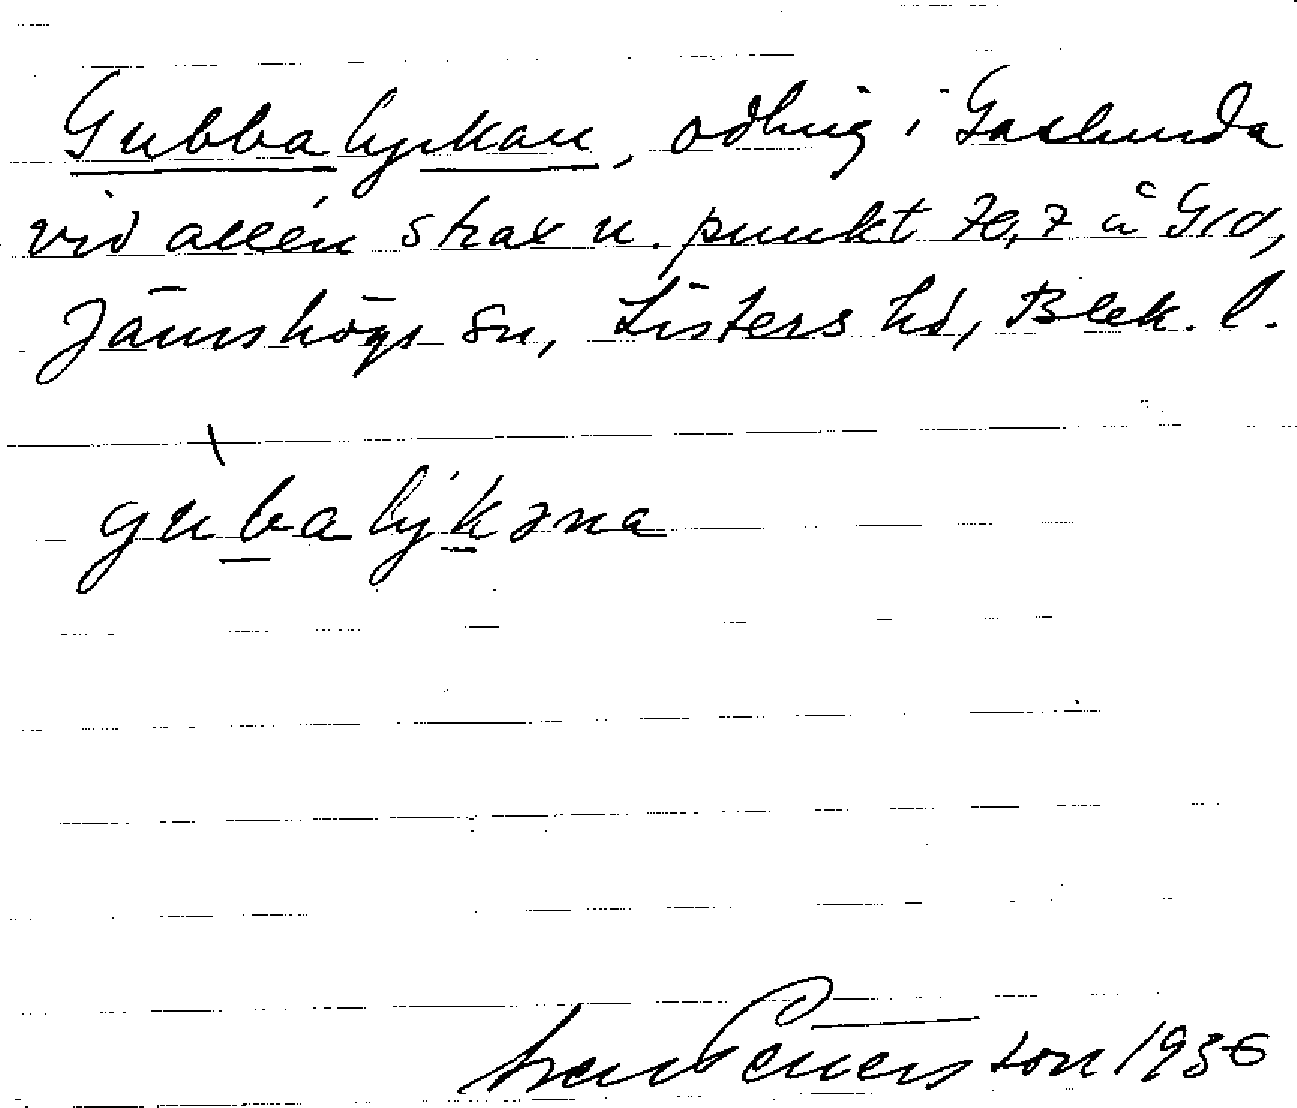 Gubbalyckan, odling i Gaslunda
vid allén strax n. punkt 70,7 å Gld,
Jämshögs sn, Listers hd, Blek. l.
gubalykəna
Pettersson 1936